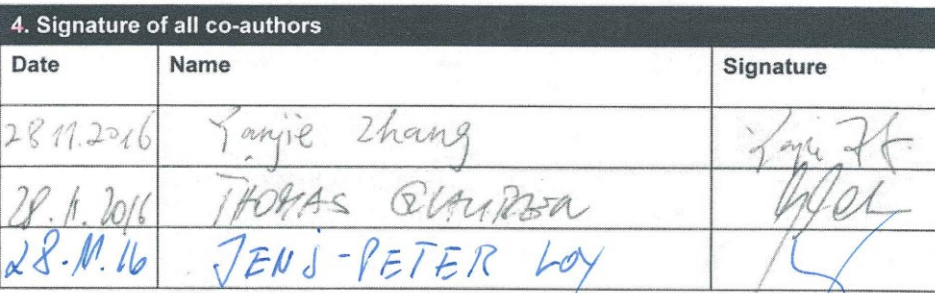 4. Signature of all co-authors
Date Name Signature
28.11.2016 Yanjie Zhang
28.11.2016 THOMAS
28.11.16 JENS-PETER LOY